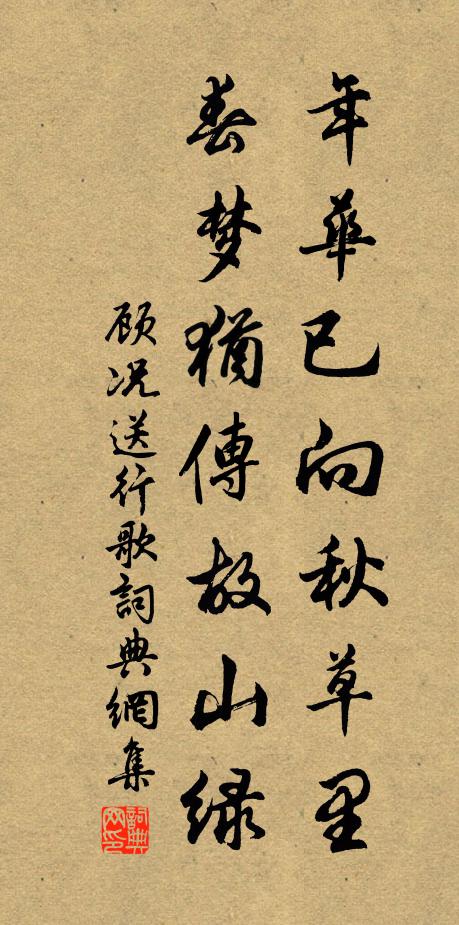 年華已向秋草里
春梦猶傳故山緑
顾况送行歌詞典網集
詞典网印